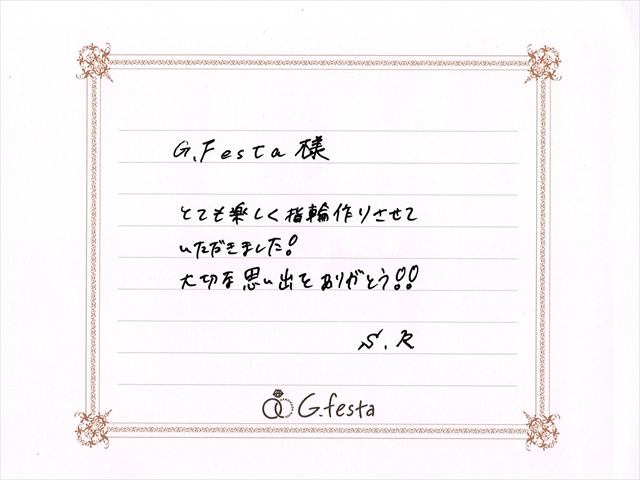 G.Festa 様
とても楽しく指輪作りさせて
いただきました!
大切な思い出をありがとう!!
S.R
G.festa